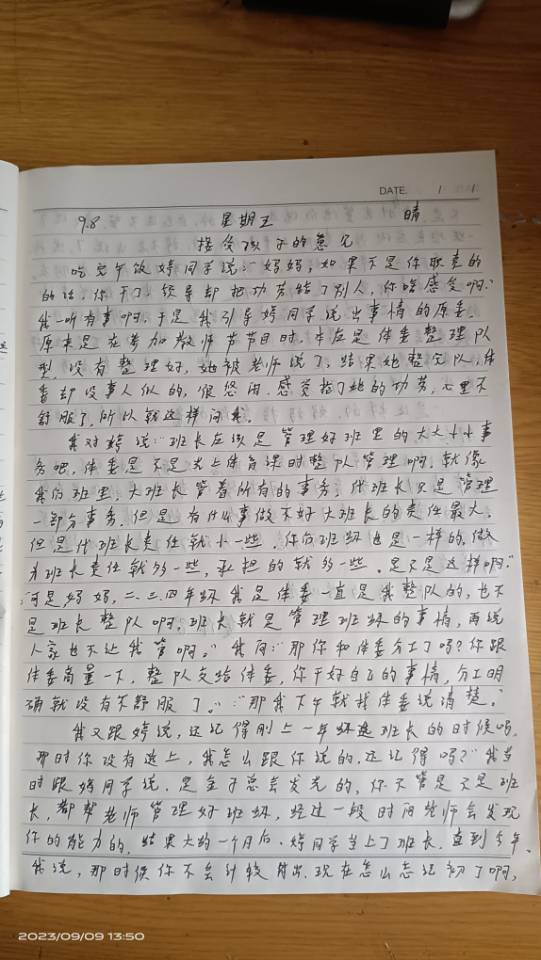 DATE / /
9.8 星期五 晴
接受孩子的意见
吃完午饭婷同学说:“妈妈,如果不是你职责的
的话,你干了,领导却把功劳给了别人,你啥感受啊?”
我一听有事啊,于是我引导婷同学说出事情的原委,
原来是在参加教师节节目时,本应是体委整理队
型,没有整理好,她被老师说了,结果她整完队,体
委却没事人似的,很悠闲,感觉抢了她的功劳,心里不
舒服了,所以就这样问我。
我对婷说:“班长应该是管理好班里的大大小小事
务吧,体委是不是去上体育课时整队管理啊,就像
我们班里,大班长管着所有的事务,代班长只是管理
一部分事务,但是有什么事做不好大班长的责任最大,
但是代班长责任就小一些,你们班级也是一样的,做
为班长责任就多一些,承担的就多一些,是不是这样啊?”
“可是妈妈,二、三、四年级我是体委一直是我整队的,也不
是班长整队啊,班长就是管理班级的事情,再说
人家也不让我管啊。”我问:“那你和体委分工了吗?你跟
体委商量一下,整队交给体委,你干好自己的事情,分工明
确就没有不舒服了。”“那我下午就找体委说清楚。”
我又跟婷说,还记得刚上一年级选班长的时候吗,
那时你没有选上,我怎么跟你说的,还记得吗?”我当
时跟婷同学说,是金子总会发光的,你不管是不是班
长,都帮老师管理好班级,经过一段时间老师会发现
你的能力的,结果大约一个月后,婷同学当上了班长,直到今年,
我说,那时候你不会计较付出,现在怎么忘记初了啊,
2023/09/09 13:50